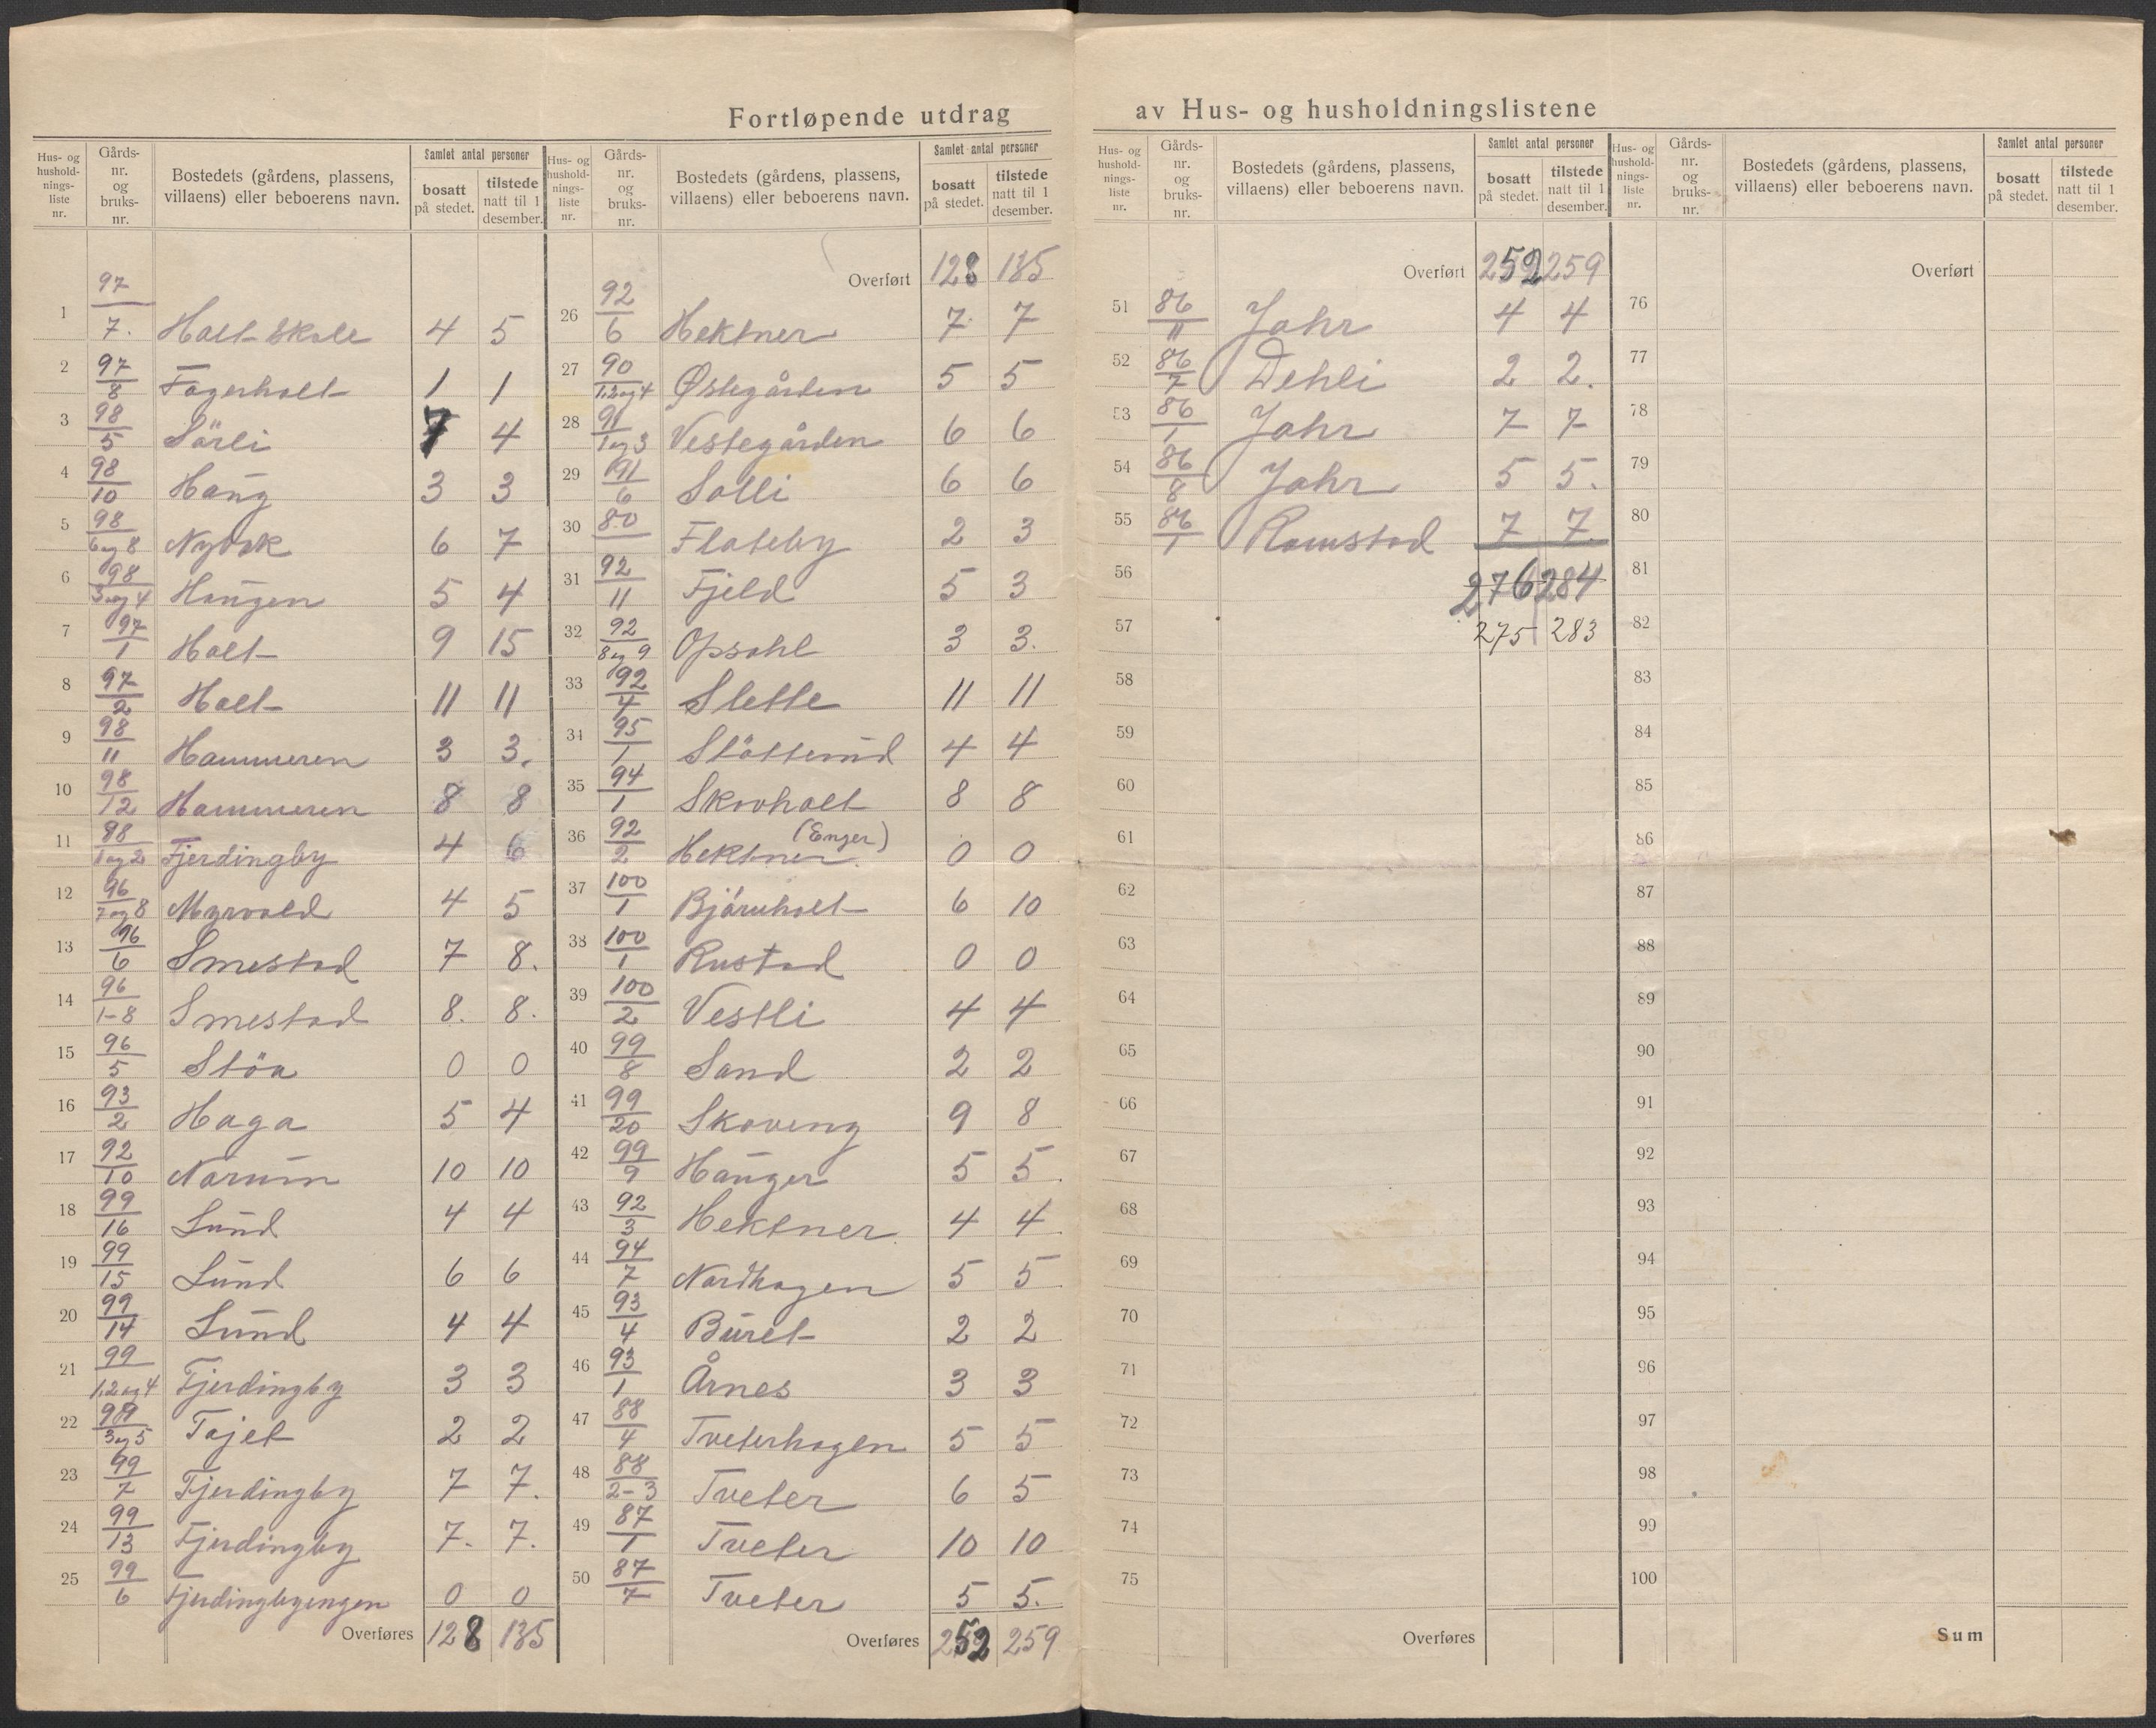 Fortløpende utdrag av Hus- og husholdningslistene
Hus- og husholdnings-liste nr. | Gårds-nr. og bruks-nr. | Bostedets (gårdens, plassens, villaens) eller beboerens navn. | Samlet antal personer | bosatt på stedet. | tilstede natt til 1 desember.
1 97/7. Holt skole 4 5
2 97/8 Fagerholt 1 1
3 98/5 Sörli 7 4
4 98/10 Haug 3 3
5 98/6 og 8 Nybak 6 7
6 98/3 og 4 Haugen 5 4
7 97/1 Holt 9 15
8 97/2 Holt 11 11
9 98/11 Hammeren 3 3.
10 98/12 Hammeren 8 8
11 88/1 og 2 Fjerdingby 4 6
12 96/7 og 8 Myrvold 4 5
13 96/6 Smestad 7 8.
14 96/1-8 Smestad 8. 8.
15 96/5 Stöa 0 0
16 93/2 Haga 5 4
17 92/10 Narum 10 10
18 99/16 Lund 4 4
19 99/15 Lund 6 6
20 99/14 Lund 4 4
21 99/1,2 og 4 Fjerdingby 3 3
22 99/3 og 5 Tajet 2 2
23 99/7 Fjerdingby 7 7.
24 99/13 Fjerdingby 7. 7.
25 99/6 Fjerdingbyengen 0 0
Overføres 128 135
Hus- og husholdnings-liste nr. | Gårds-nr. og bruks-nr. | Bostedets (gårdens, plassens, villaens) eller beboerens navn. | Samlet antal personer | bosatt på stedet. | tilstede natt til 1 desember.
Overført 128 135
26 92/6 Hektner 7 7
27 90/1,2 og 4 Østegården 5 5
28 91/1 og 3 Vestegården 6 6
29 91/6 Solli 6 6
30 80 Flateby 2 3
31 92/11 Fjeld 5 3
32 92/8 og 9 Opsahl 3 3.
33 92/4 Slette 11 11
34 95/1 Slötterud 4 4
35 94/1 Skovholt 8 8
36 92/2 Hektner (Enger) 0 0
37 100/1 Bjórnholt 6 10
38 100/1 Rustad 0 0
39 100/2 Vestli 4 4
40 99/8 Sand 2 2
41 99/20 Skoveng 9 8
42 99/9 Hauger 5 5.
43 92/3 Hektner 4 4
44 94/7 Nordhagen 5 5
45 93/4 Buret 2 2
46 93/1 Årnes 3 3
47 88/4 Tveterhagen 5 5
48 88/2-3 Tveter 6 5
49 87/1 Tveter 10 10
50 87/7 Tveter 5 5.
Overføres 252 259
Hus- og husholdnings-liste nr. | Gårds-nr. og bruks-nr. | Bostedets (gårdens, plassens, villaens) eller beboerens navn. | Samlet antal personer | bosatt på stedet. | tilstede natt til 1 desember.
Overført 252 259
51 86/11 Jahr 4 4
52 86/7 Dehli 2 2.
53 86/1 Jahr 7 7
54 86/8 Jahr 5 5.
55 86/1 Ramstad 7 7.
56 276 284
57 275 283
58
59
60
61
62
63
64
65
66
67
68
69
70
71
72
73
74
75
Overføres
Hus- og husholdnings-liste nr. | Gårds-nr. og bruks-nr. | Bostedets (gårdens, plassens, villaens) eller beboerens navn. | Samlet antal personer | bosatt på stedet. | tilstede natt til 1 desember.
Overført
76
77
78
79
80
81
82
83
84
85
86
87
88
89
90
91
92
93
94
95
96
97
98
99
100
Sum